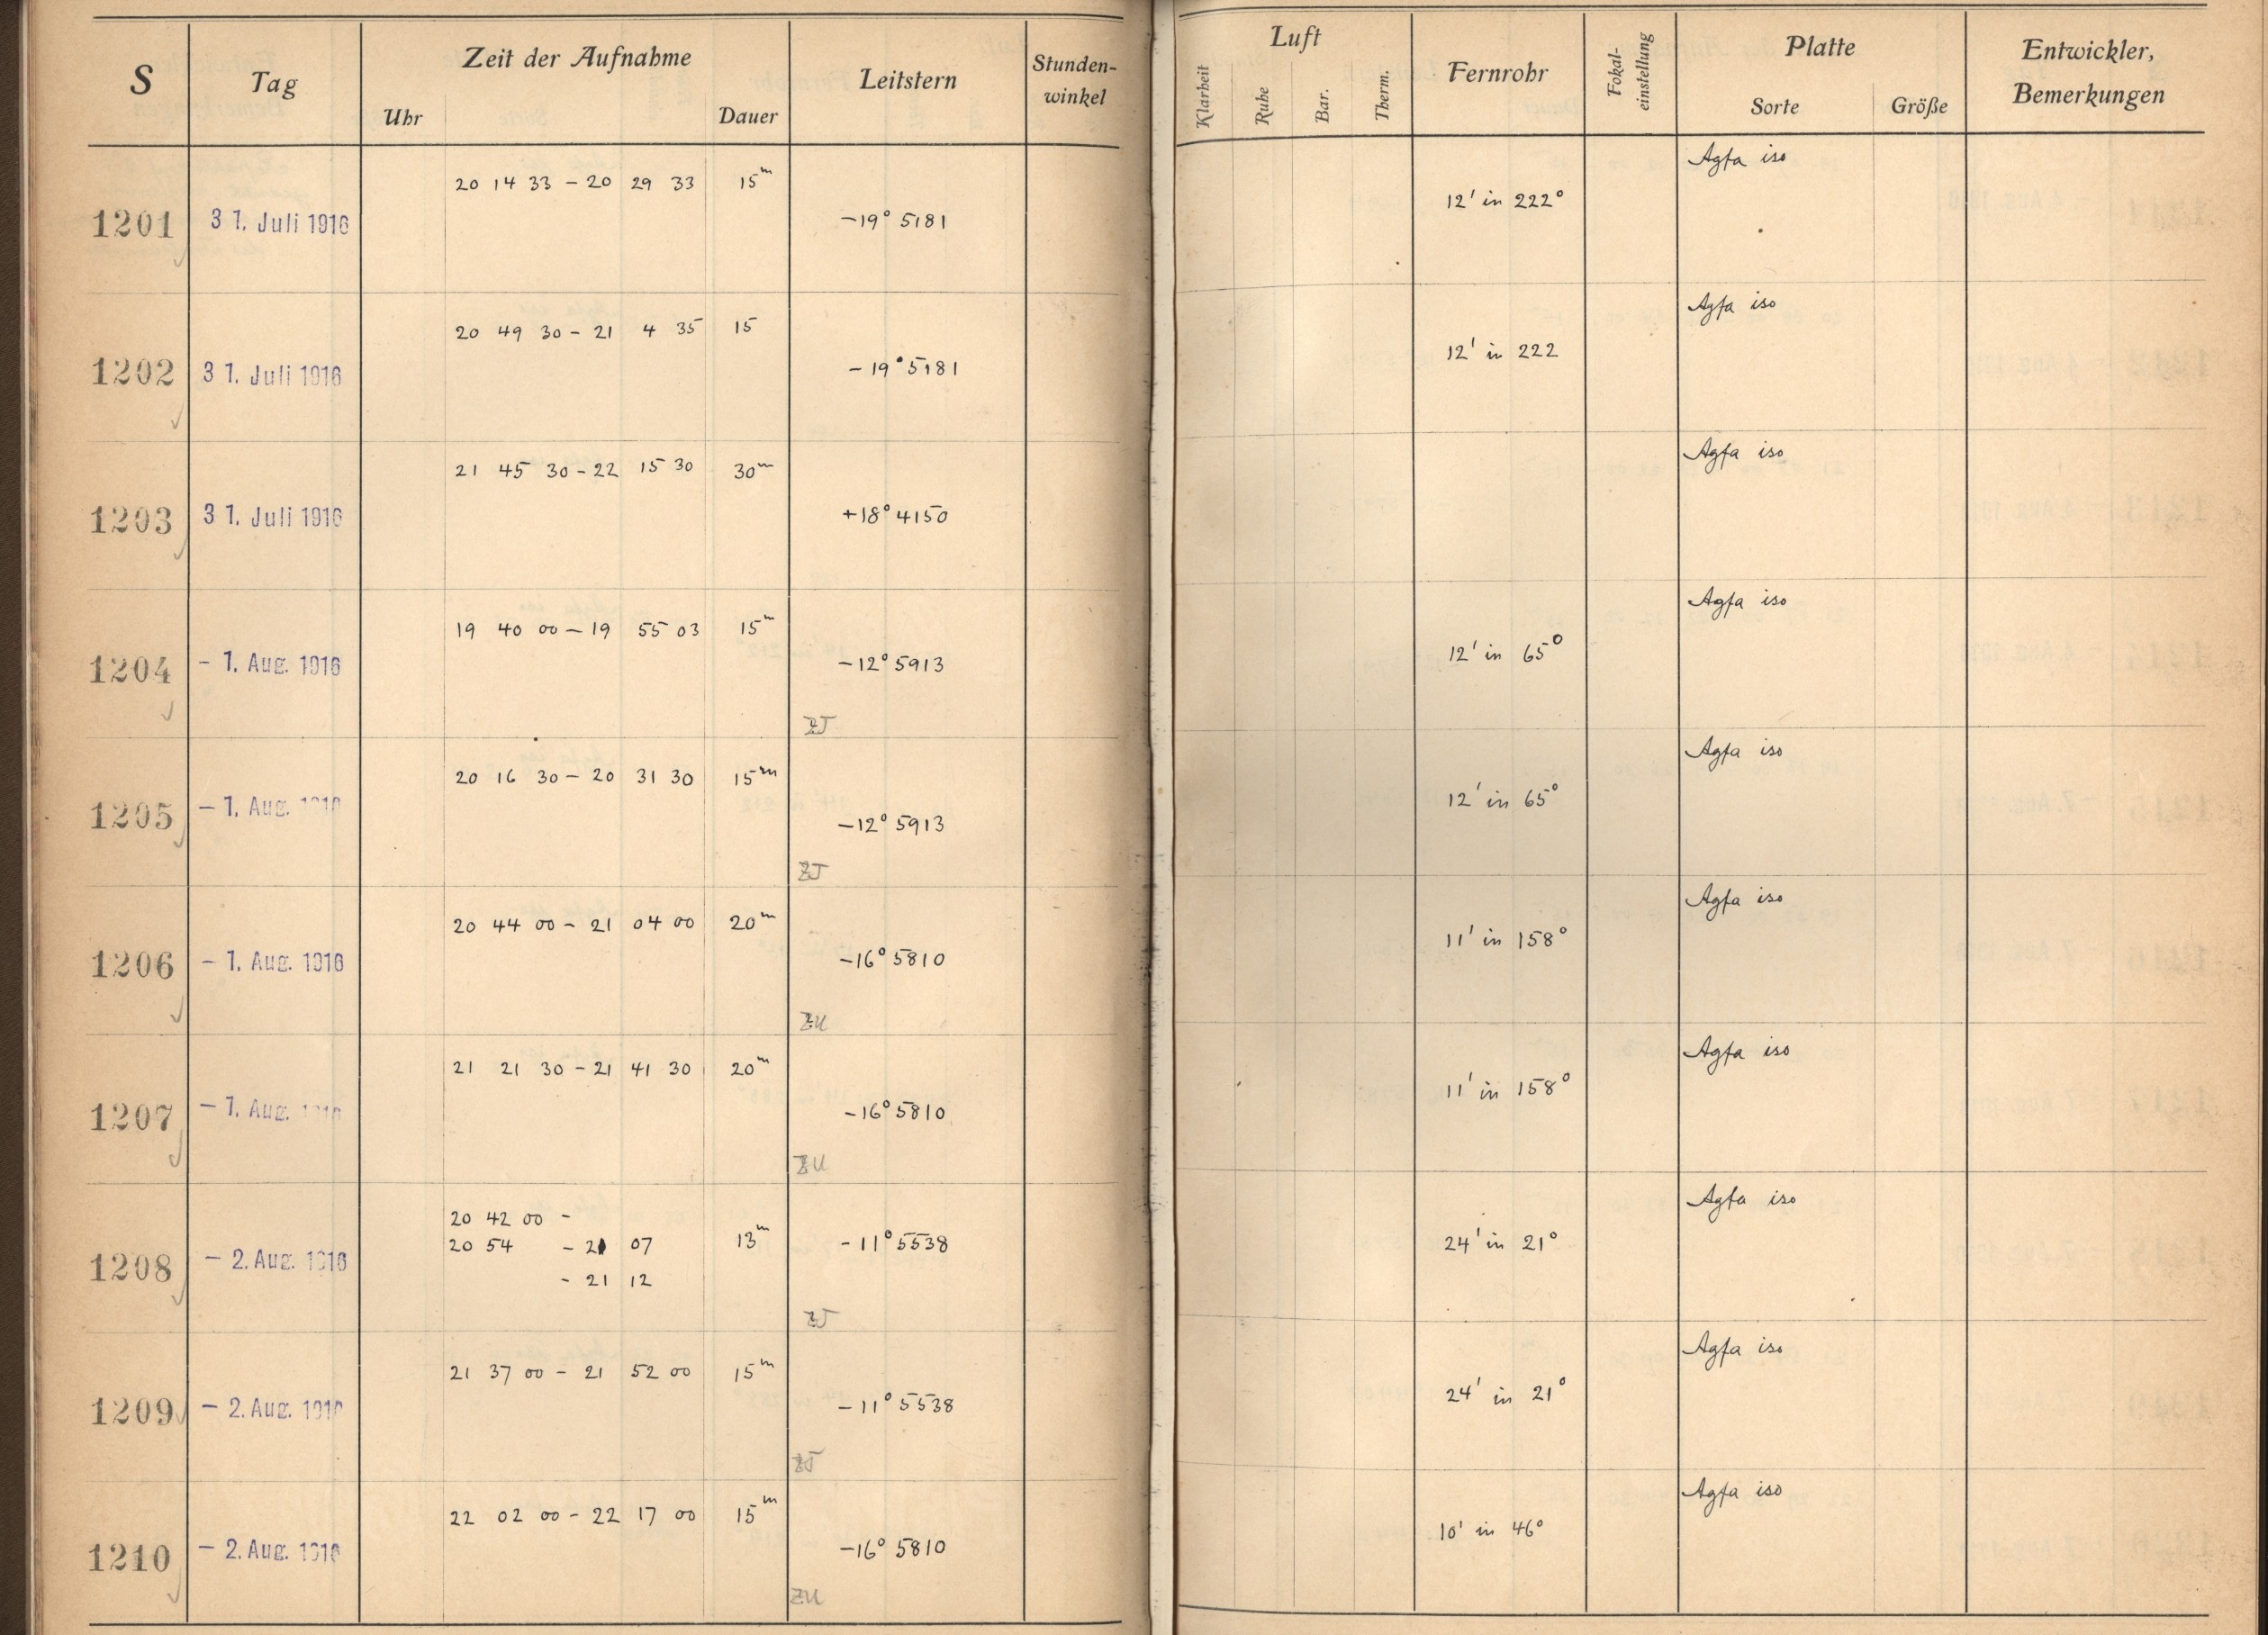 S Tag Zeit der Aufnahme Leitstern Stunden-winkel Luft Fernrohr Fokal-einstellung Platte Entwickler, Bemerkungen
Uhr Dauer Klarheit Ruhe Bar. Therm. Sorte Größe
1201 31. Juli 1916 20 14 33 – 20 29 33 15m –19° 5181 12' in 222° Agfa iso
1202 31. Juli 1916 20 49 30 – 21 4 35 15 –19° 5181 12' in 222 Agfa iso
1203 31. Juli 1916 21 45 30 – 22 15 30 30m +18° 4150 Agfa iso
1204 – 1. Aug. 1916 19 40 00 – 19 55 03 15m –12° 5913 12' in 65° Agfa iso
ZJ
1205 – 1. Aug. 1916 20 16 30 – 20 31 30 15m –12° 5913 12' in 65° Agfa iso
ZJ
1206 – 1. Aug. 1916 20 44 00 – 21 04 00 20m –16° 5810 11' in 158° Agfa iso
ZU
1207 – 1. Aug. 1916 21 21 30 – 21 41 30 20m –16° 5810 11' in 158° Agfa iso
ZU
20 42 00 –
1208 – 2. Aug. 1916 20 54 – 21 07 13m –11° 5538 24' in 21° Agfa iso
– 21 12
ZJ
1209 – 2. Aug. 1916 21 37 00 – 21 52 00 15m –11° 5538 24' in 21° Agfa iso
ZJ
1210 – 2. Aug. 1916 22 02 00 – 22 17 00 15m –16° 5810 10' in 46° Agfa iso
ZU